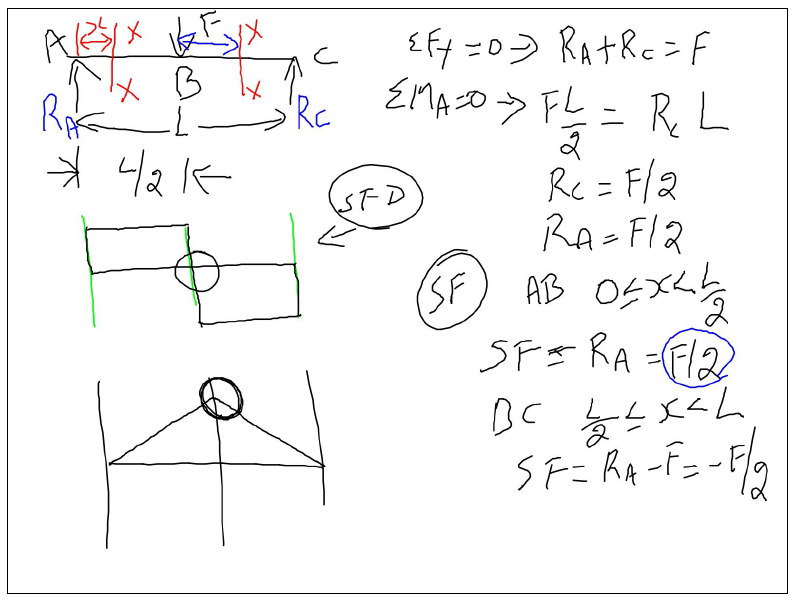 A x x F x C
B x x
RA L RC
L/2
SFD
ΣFy = 0 → RA + RC = F
ΣMA = 0 → F L/2 = Rc L
Rc = F/2
RA = F/2
SF AB 0 ≤ x < L/2
SF = RA = F/2
BC L/2 ≤ x < L
SF = RA - F = -F/2